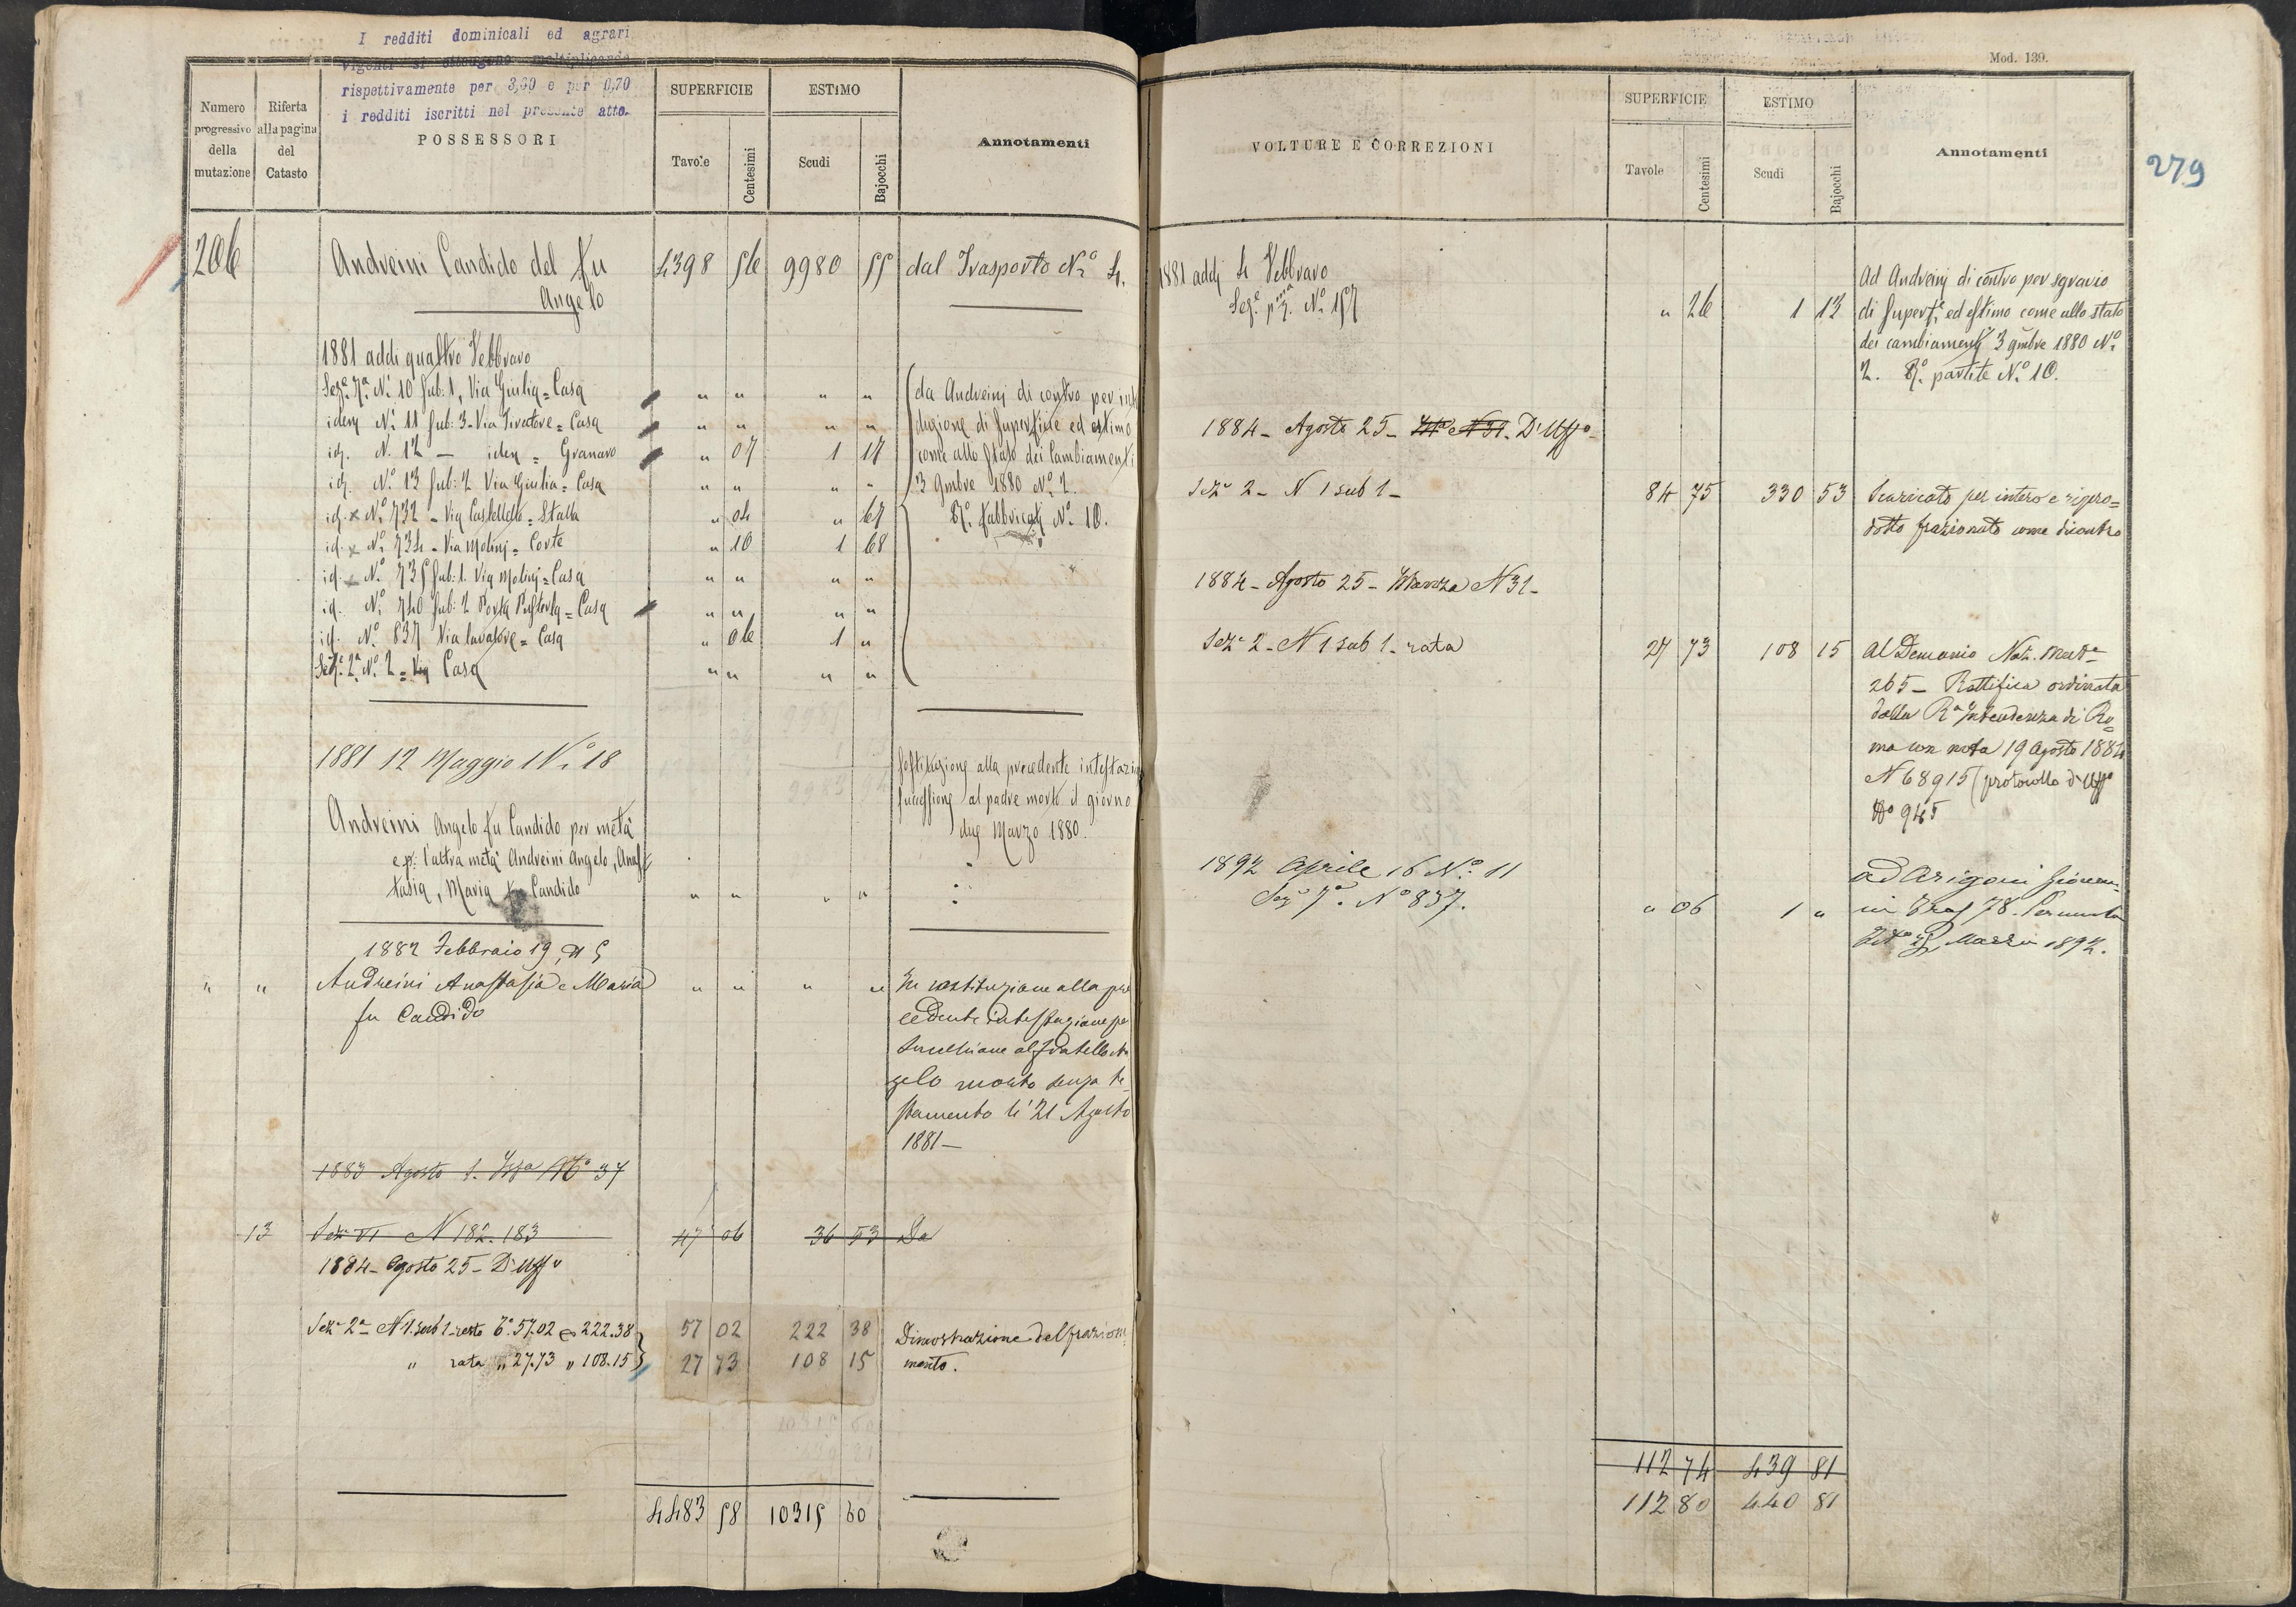 I redditi dominicali ed agrari
vigenti si ottengono moltiplicando
rispettivamente per 3,60 e per 0,70
i redditi iscritti nel presente atto.
Numero progressivo della mutazione
Riferta alla pagina del Catasto
POSSESSORI
SUPERFICIE
Tavole
Centesimi
ESTIMO
Scudi
Bajocchi
Annotamenti
206 Andreini Candido del fu 4398 56 9980 55 dal Trasporto N.º 4.
Angelo
1881 addi quattro Febbraro
Sez.e 7.a N.º 10 Sub. 1, Via Giulia = Casa " " " " da Andreini di contro per
idem N.º 11 Sub: 3 - Via Tiratore = Casa " " " " duzione di Superficie ed estimo
id. N. 12 — idem = Granaro " 07 1 17 come allo Stato dei Cambiamenti
id. N.º 13 Sub: 2 Via Giulia = Casa " " " " 3 9mbre 1880 N.º 2.
id. x N.º 732 - Via Castelletto = Stalla " 04 " 67 R.º fabbricati N.º 10.
id. x N.º 734 - Via Molini = Corte " 10 1 68
id. x N.º 735 Sub: 1. Via Molini = Casa " " " "
id. N.º 740 Sub: 2 Porta = Casa " " " "
id. N.º 837 Via lavatore = Casa " 06 1 "
Sez.e 2.a N.º 2 = Via Casa " " " "
1881 12 Maggio N.º 18
Sostituzione alla precedente intestazio
Successione al padre morto il giorno
due Marzo 1880.
Andreini Angelo fu Candido per metà
e p. l'altra metà Andreini Angelo, Anas
tasia, Maria fu Candido " " " "
1882 Febbraio 19, N 5
" " Andreini Anastasia e Maria " " " " In sostituzione alla pre
fu Candido
cedente intestazione pe
Successione al fratello An
gelo morto senza te
stamento li 21 Agosto
1881 —
1883 Agosto 1. N.º 37
13 Sez. VI N 182. 183 47 06 36 53 Da
1884 - Agosto 25 - D'Uff.o
Sez.e 2.a N 1. sub 1 - resto T.e 57.02 222.38 57 02 222 38 Dimostrazione del fraziona
" rata " 27.73 " 108.15 27 73 108 15 mento.
4483 58 10315 60
Mod. 139.
279
VOLTURE E CORREZIONI
SUPERFICIE
Tavole
Centesimi
ESTIMO
Scudi
Bajocchi
Annotamenti
1881 addi 4 Febbraro
Sez.e N.º 157 " 26 1 13
Ad Andreini di contro per sgravio
di Superf.e ed estimo come allo stato
dei cambiamenti 3 9mbre 1880 N.º
2. R.º partite N.º 10.
1884 - Agosto 25 - N 31. D'Uff.o -
Sez.e 2 - N 1 sub 1 - 84 75 330 53 Scaricato per intero e ripro=
dotto frazionato come dicontro
1884 - Agosto 25 - N 31 -
Sez.e 2 - N 1 sub 1 - rata 27 73 108 15 Al Demanio Naz.
265 - Rettifica ordinata
dalla R.a Intendenza di Ro
ma con nota 19 Agosto 1884
N 68915 (protocollo d'Uff.o
N.o 945
1892 Aprile 16 N.º 11
Sez.e 7.a N.º 837. " 06 1 "
ad Arigoni Giovan=
ni 78. Permuta
Marzo 1892.
112 74 439 81
112 80 440 81